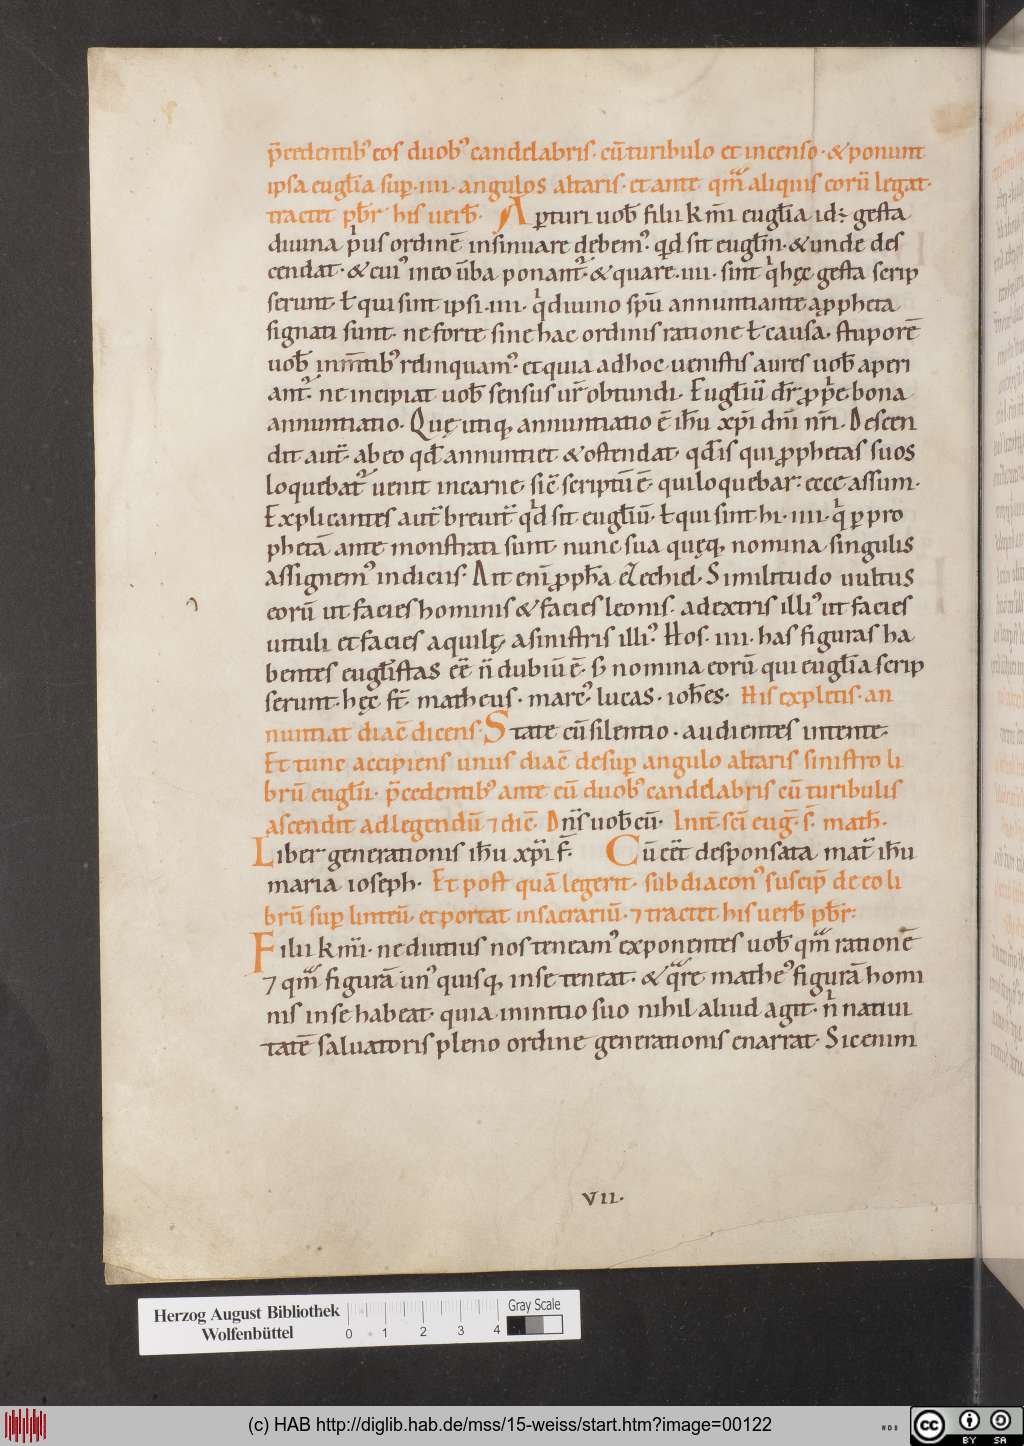 p̄cedentibꝰ eos duobꝰ candelabris· cū turibulo et incenso· & ponunt
ipsa eugl̄ia sup̱ ·iiii· angulos altaris· et ante qm̄ aliquis eorū legat·
tractet pb̄r his uerb̄· Ap̱turi uob̄ filii km̄i eugl̄ia id: gesta
diuina pͥus ordinē insinuare debemꝰ· qͥd sit eugl̄m· & unde des
cendat· & cuiꝰ in eo ūba ponant᷑· & quare ·iiii· sint qͥ hęc gesta scrip
serunt· ł qui sint ipsi ·iiii· qͥ diuino sp̄u annuntiante a ꝓpheta
signati sunt· ne forte sine hac ordinis ratione ł causa· stuporē
uob̄ in m̄tibꝰ relinquamꝰ· et quia ad hoc uenistis aures uob̄ aperi
ant᷑· ne incipiat uob̄ sensus ur̄ obtundi· Eugl̄iū dr̄ ꝓpͥe bona
annuntiatio· Quę utiq, annuntiatio ē ih̄u xp̄i dn̄i nr̄i· Descen
dit aut̄· ab eo qd̄ annuntiet & ostendat· qd̄ is qui ꝓphetas suos
loquebat᷑ uenit in carne· sic̄ scriptū ē· qui loquebar: ecce assum·
Explicantes aut̄ breuit̄ qͥd sit eugl̄iū· ł qui sint hi ·iiii· qͥ p̱ pro
phetā ante monstrati sunt· nunc sua quęq, nomina singulis
assignemꝰ indiciis· Ait eni ꝓph̄a ezechiel· Similitudo uultus
eorū ut facies hominis & facies leonis· a dextris illiꝰ ut facies
uituli et facies aquilę, a sinistris illiꝰ· Hos ·iiii· has figuras ha
bentes eugl̄istas eē n̄ dubiū ē· s; nomina eorū qui eugl̄ia scrip
serunt· hęc st̄· matheus· marcꝰ lucas· ioh̄es· His expletis· an
nuntiat diac̄ dicens· State cū silentio· audientes intente·
Et tunc accipiens unus diac̄ desup̱ angulo altaris sinistro li
brū eugl̄ii· p̄cedentibꝰ ante eū duobꝰ candelabris cū turibulis
ascendit ad legendū ⁊ dic̄· Dn̄s uob̄cū· Init̄· sc̄i euḡ· s̄· math̄·
Liber generationis ih̄u xp̄i f̄· Cū eēt desponsata mat̄ ih̄u
maria ioseph· Et post quā legerit· subdiaconꝰ suscip̄ de eo li
brū sup̱ linteū· et portat in sacrariū· ⁊ tractet his uerb̄ pb̄r:
Filii km̄i· ne diutius nos teneamꝰ exponentes uob̄ qm̄ rationē
⁊ qm̄ figurā unꝰ quisq, in se teneat· & qͣre matheꝰ figurā homi
nis in se habeat· quia in initio suo nihil aliud agit· nͥ natiui
tatē saluatoris pleno ordine generationis enarrat· Sic enim
VII·
Herzog August Bibliothek
Wolfenbüttel
0 1 2 3 4
Gray Scale
(c) HAB http://diglib.hab.de/mss/15-weiss/start.htm?image=00122
cc BY SA